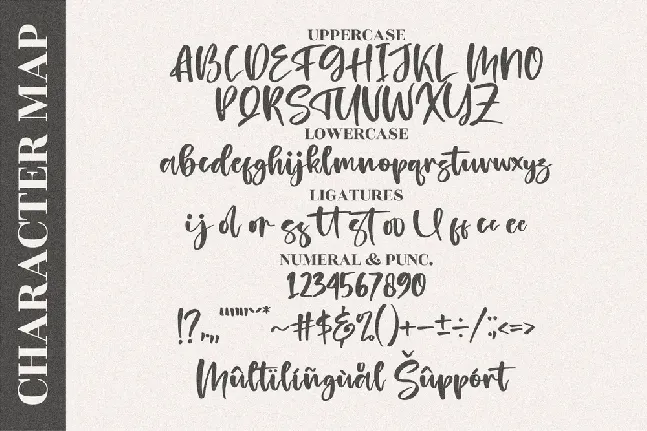 CHARACTER MAP
UPPERCASE
ABCDEFGHIJKL MNO
PQRSTUVWXYZ
LOWERCASE
abcdefghijklmnopqrstuvwxyz
LIGATURES
ij ol or ss tt st oo ll ff cc ee
NUMERAL & PUNC.
1234567890
~#$&%()+−±÷/:;<=>
Mûltïlíñgùål Šûppórt